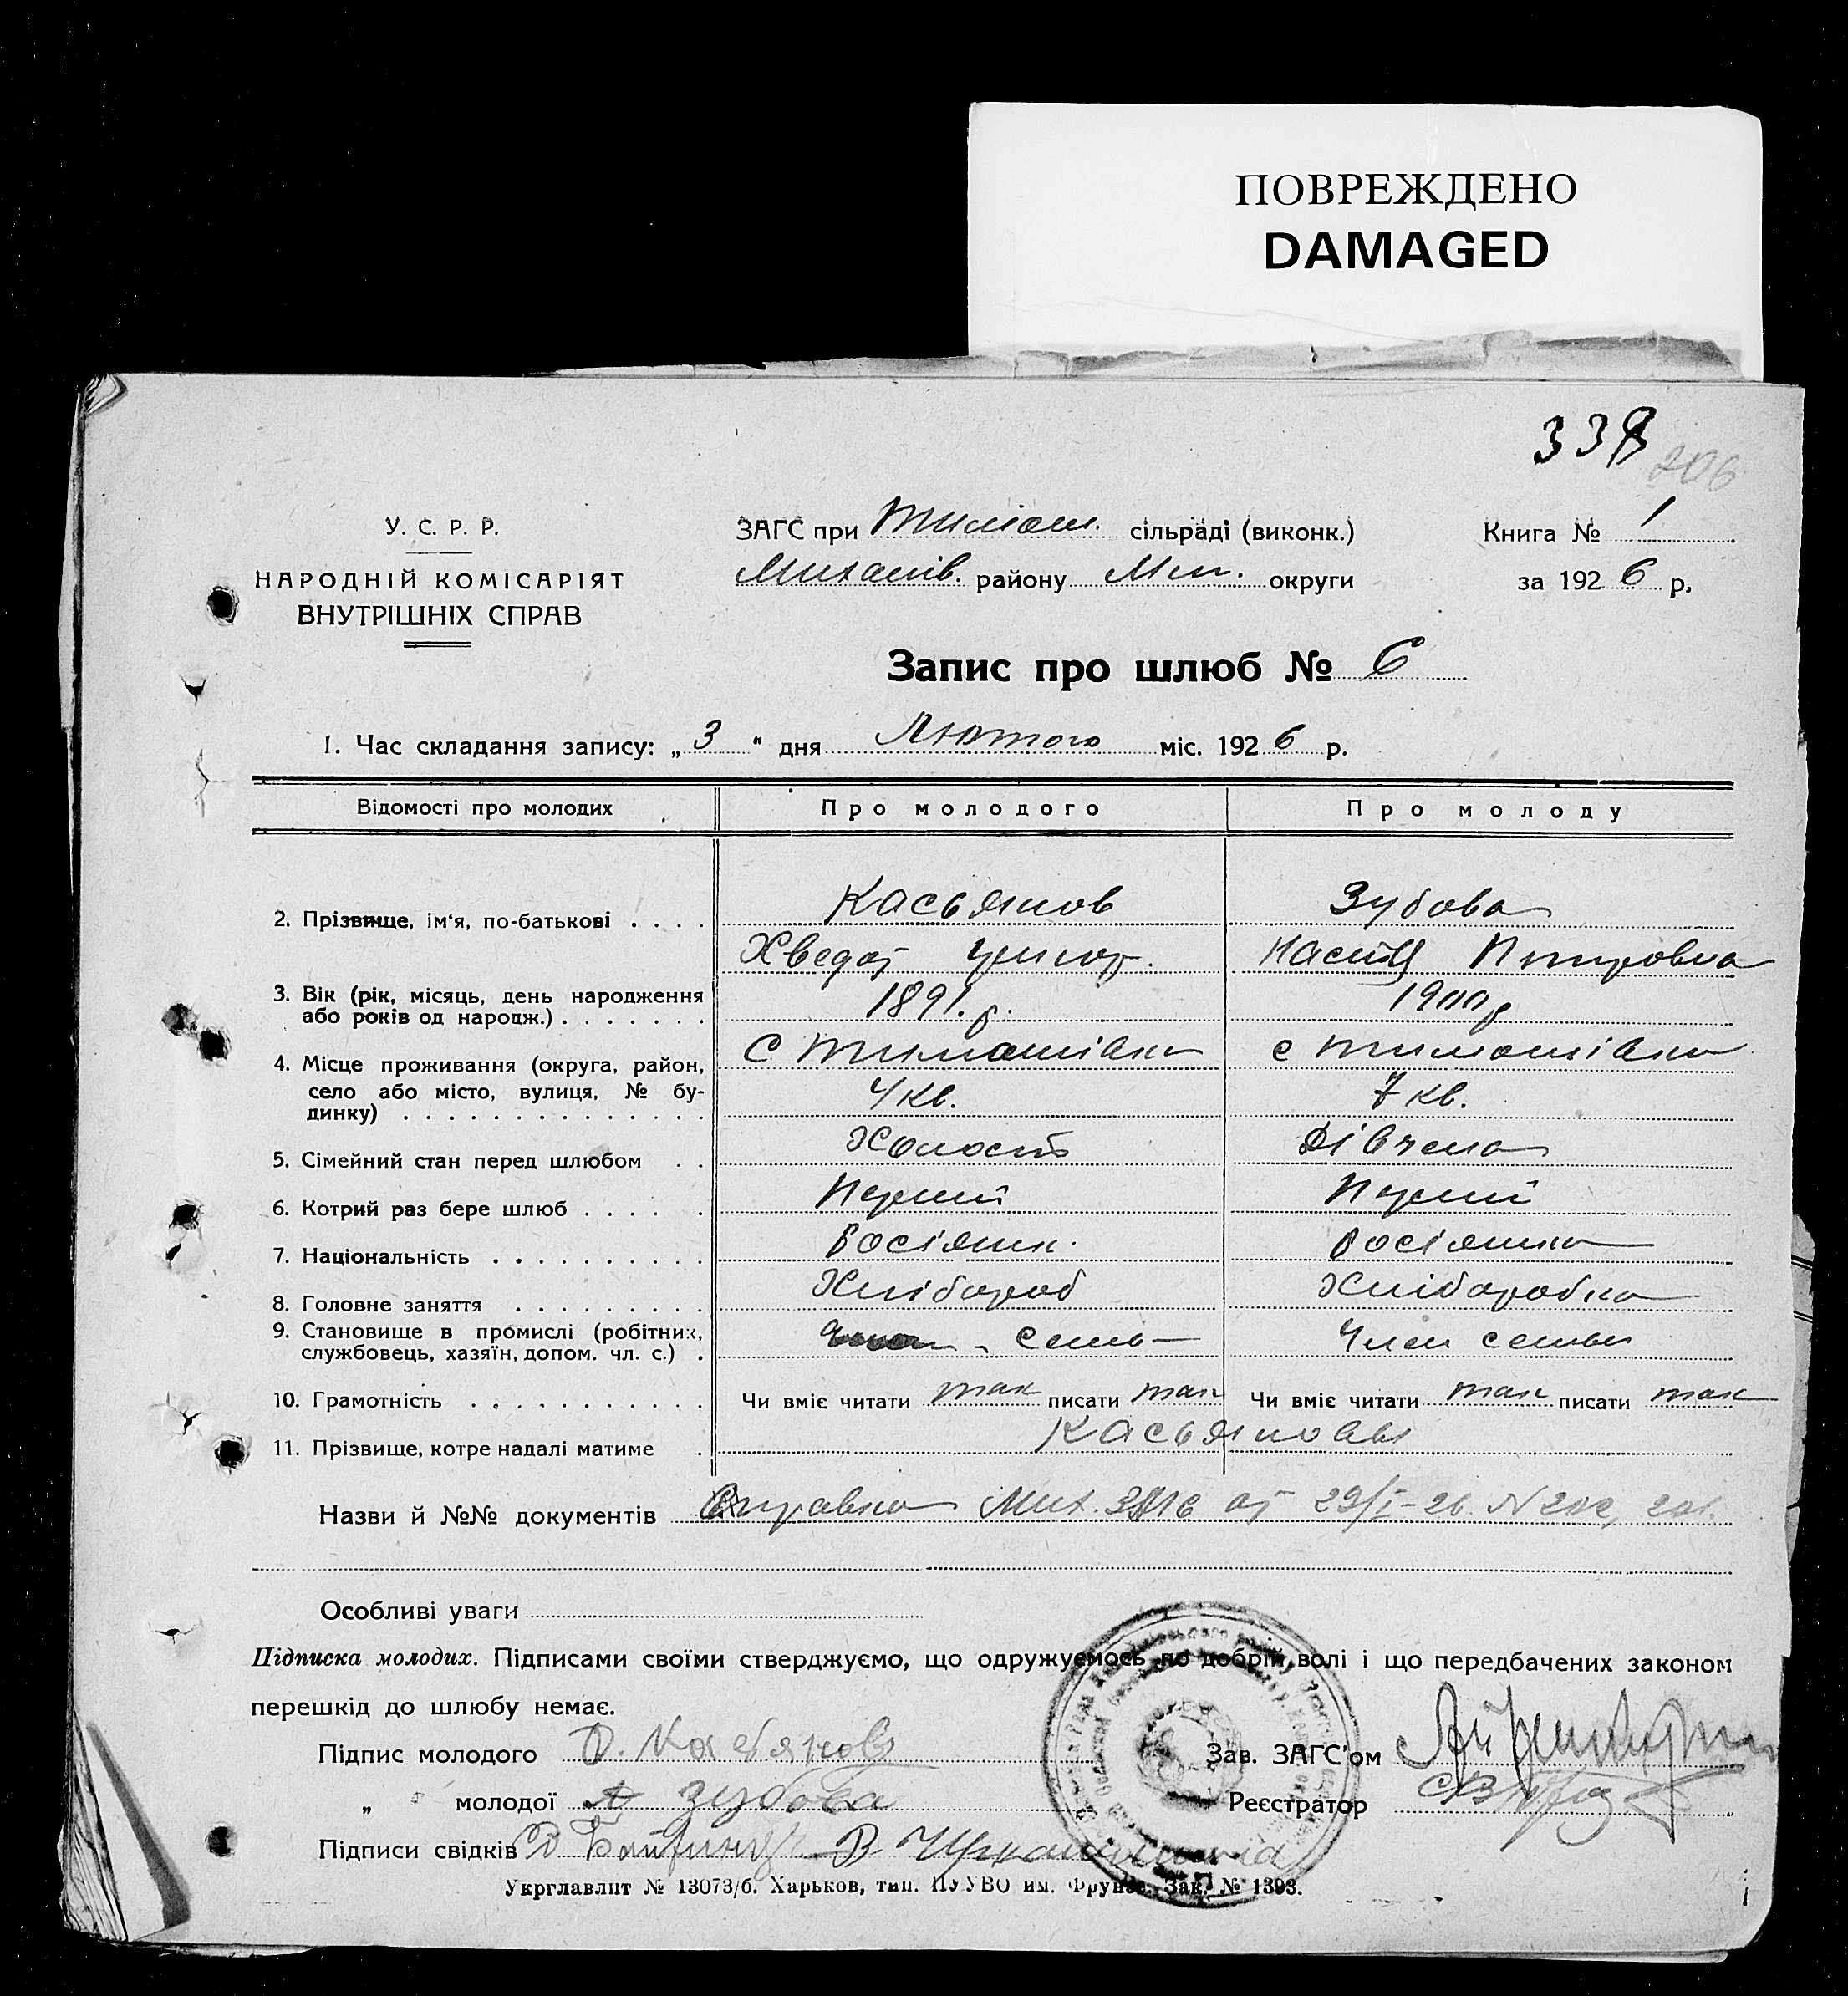 ПОВРЕЖДЕНО
DAMAGED
339
206
У. С. Р. Р.
НАРОДНІЙ КОМІСАРІЯТ
ВНУТРІШНІХ СПРАВ
ЗАГС при Тимош. сільраді (виконк.)
Михайлів. району Мел. округи
Книга № 1
за 1926 р.
Запис про шлюб № 6
1. Час складання запису: „3“ дня Лютого міс. 1926 р.
Відомості про молодих Про молодого Про молоду
2. Прізвище, ім‘я, по-батькові . . . . Касьянов Зубова
Хведот Настя Петровна
3. Вік (рік, місяць, день народження або років од народж.) . . . . . . . 1891.р. 1900р
4. Місце проживання (округа, район, село або місто, вулиця, № будинку) . . . . . . . . . . . . . . С Тимошівки 4 кв. с Тимошівки 7 кв.
5. Сімейний стан перед шлюбом . . Холост Дівчена
6. Котрий раз бере шлюб . . . . . Перший Перший
7. Національність . . . . . . . . . . Росіянин. Росіянка
8. Головне заняття . . . . . . . . . Хлібороб Хліборобка
9. Становище в промислі (робітник, службовець, хазяїн, допом. чл. с.) . семь Член семьи
10. Грамотність . . . . . . . . . . . Чи вміє читати так писати так Чи вміє читати так писати так
11. Прізвище, котре надалі матиме . Касьяновы
Назви й №№ документів Справка Мих. ЗАГС от 29/I-26. N 202, 201.
Особливі уваги
Підписка молодих. Підписами своїми стверджуємо, що одружуємось по добрій волі і що передбачених законом
перешкід до шлюбу немає.
Підпис молодого Ф. Касьянов Зав. ЗАГС‘ом
„ молодої А Зубова Реєстратор
Підписи свідків
Укрглавліт № 13073/б. Харьков, тип. ПУУВО им. Фрунзе. Зак. № 1393.